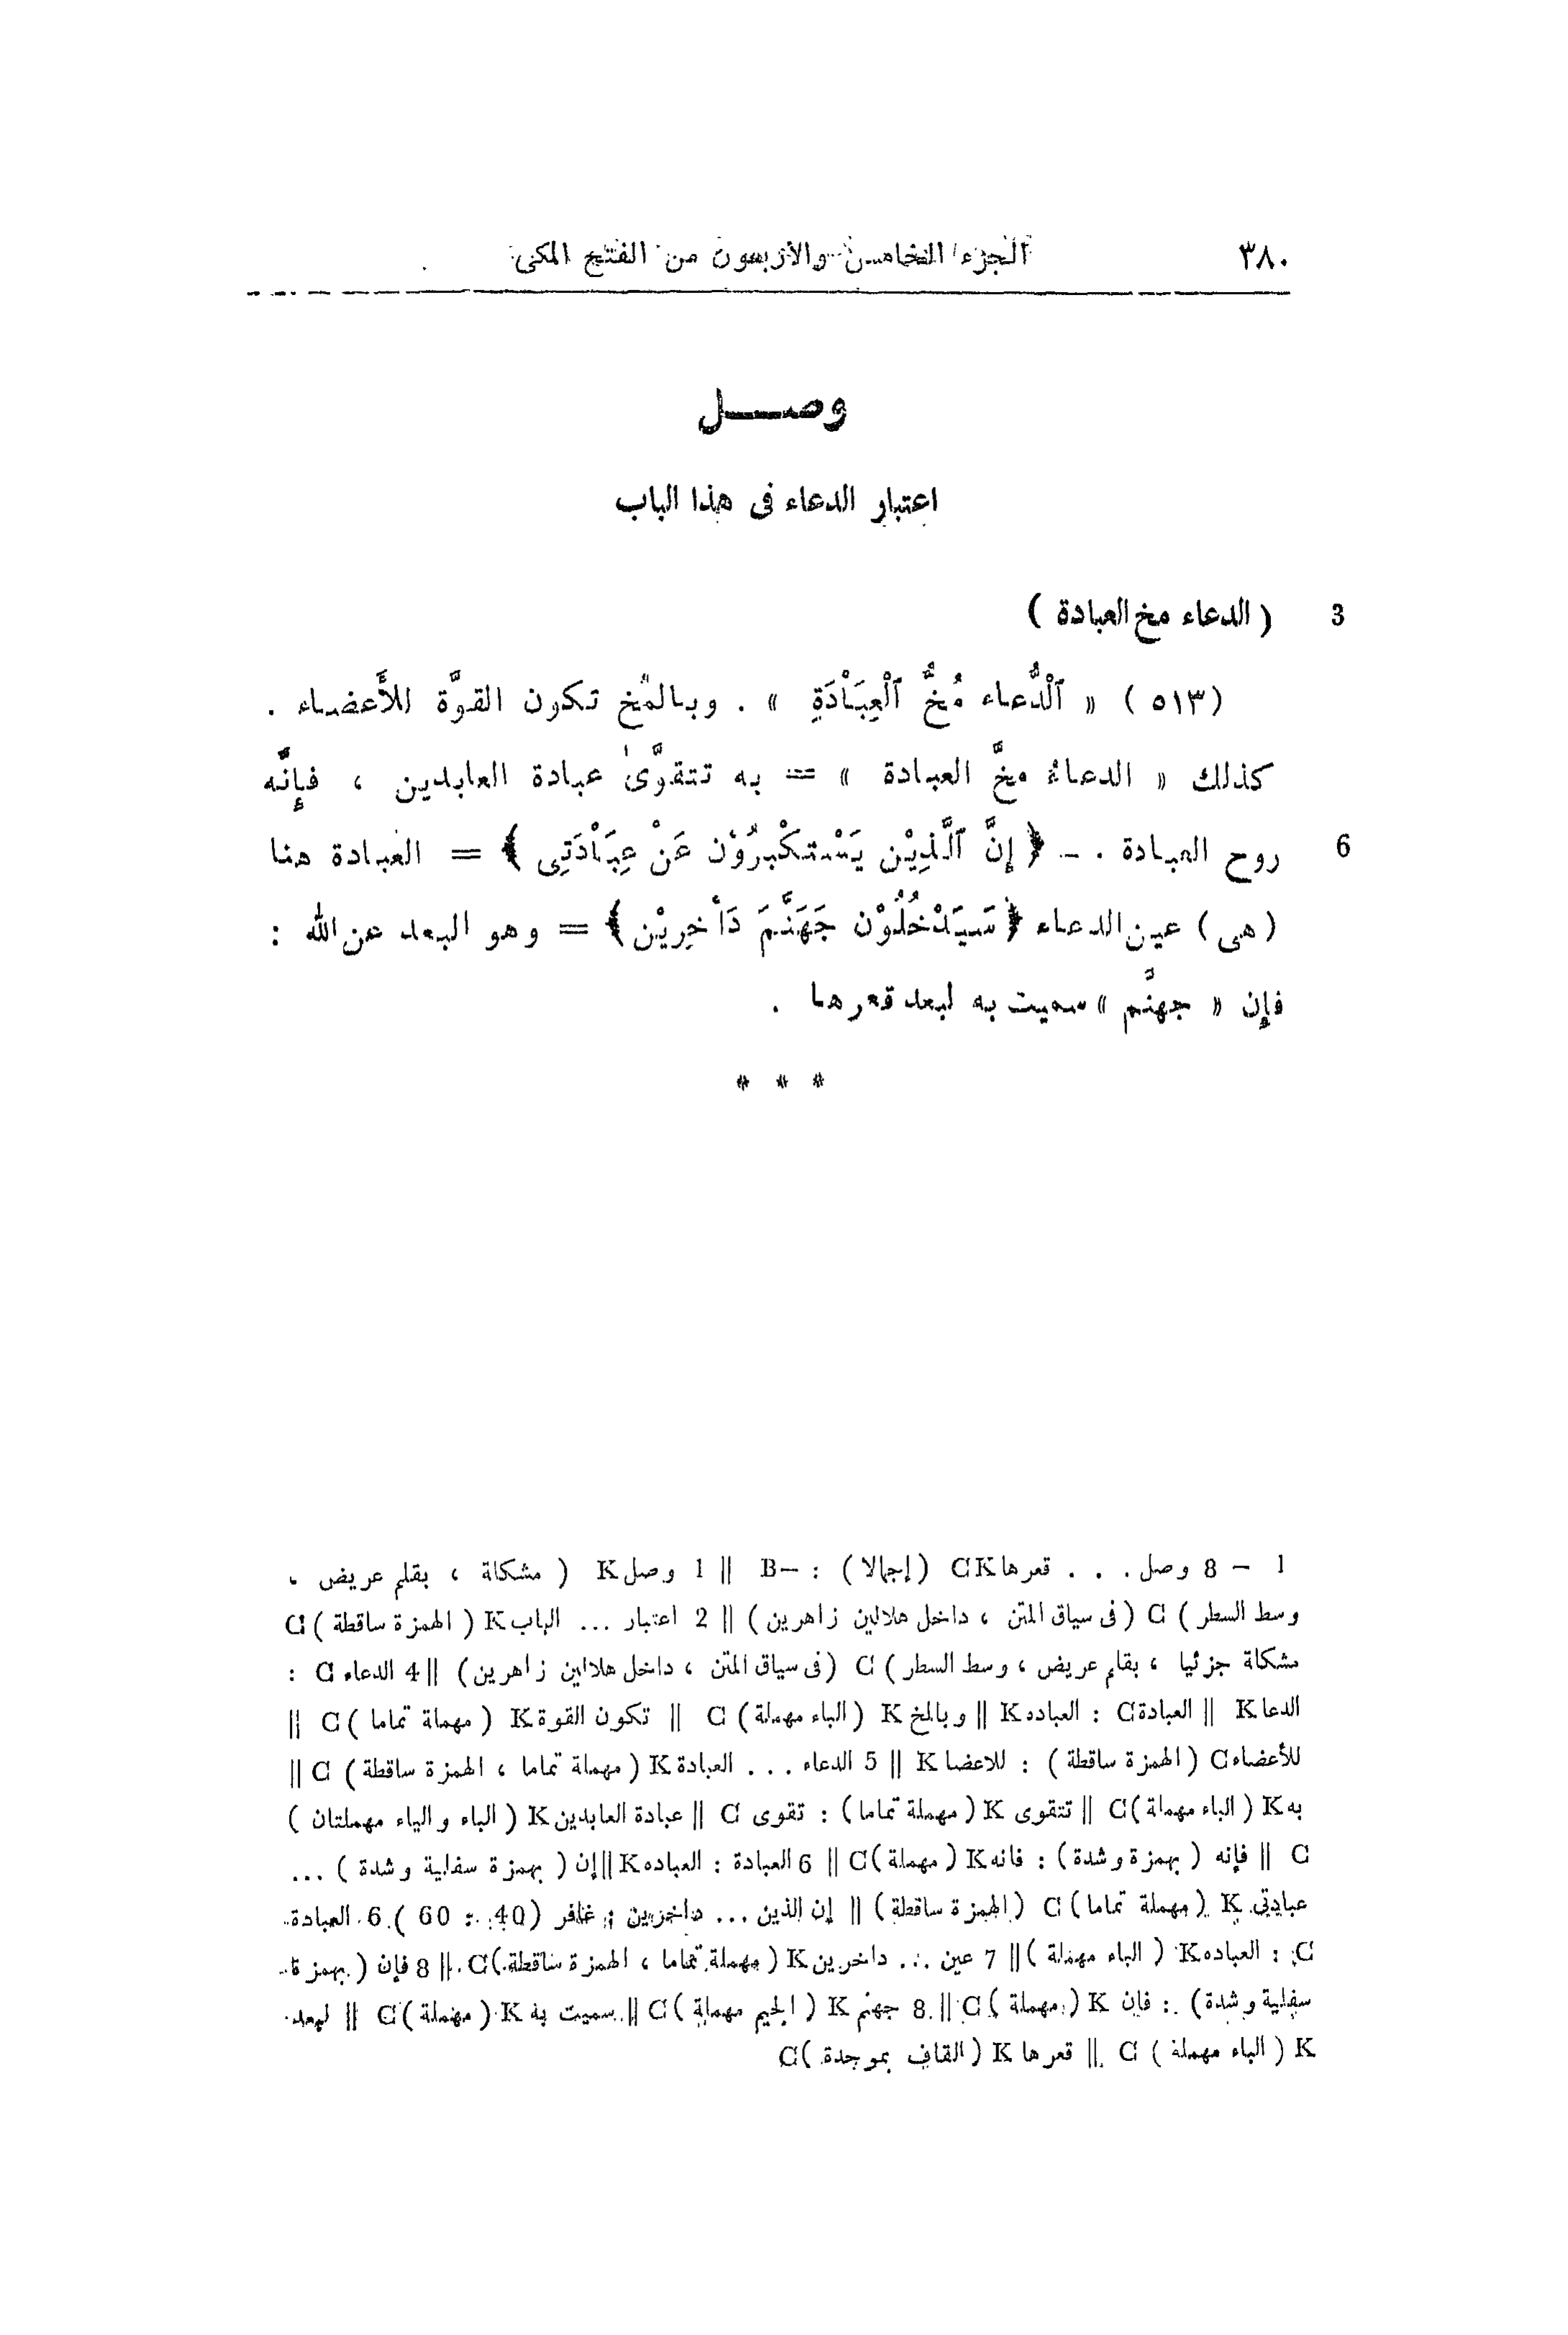 ٣٨٠ الجزء الخامس والأربعون من الفتح المكى
وصــــل
اعتبار الدعاء فى هذا الباب
3 ( الدعاء مخ العبادة )
(٥١٣ ) « ٱلْدُّعاء مُخُّ ٱلْعِبَاْدَةِ » . وبالمُخ تكون القوَّة للأَعضاء .
كذلك « الدعاءُ مخَّ العبادة » = به تتقوَّىٰ عبادة العابدين ، فإِنَّه
6 روح العبادة . – ﴿ إِنَّ ٱلَّذِيْن يَسْتكْبِرُوْن عَنْ عِبَاْدَتِى ﴾ = العبادة هنا
( هى ) عين الدعاء ﴿ سَيَدْخُلُوْن جَهَنَّمَ دَاْخِرِيْن ﴾ = وهو البعد عن الله :
فإِن « جهنَّم » سميت به لبعد قعرها .
* * *
1 – 8 وصل . . . قعرها CK (إجمالا) : –B || 1 وصل K ( مشكلة ، بقلم عريض ،
وسط السطر ) C (فى سياق المتن ، داخل هلالين زاهرين ) || 2 اعتبار ... الباب K ( الهمزة ساقطة ) C
مشكلة جزئيا ، بقلم عريض ، وسط السطر ) C (فى سياق المتن ، داخل هلالين زاهرين) || 4 الدعاء C :
الدعا K || العبادة C : العباده K || وبالمخ K (الباء مهملة ) C || تكون القوة K ( مهملة تماما ) C ||
للأعضاء C ( الهمزة ساقطة ) : للاعضا K || 5 الدعاء . . . العبادة K ( مهملة تماما ، الهمزة ساقطة ) C ||
به K ( الباء مهملة ) C || تتقوى K ( مهملة تماما ) : تقوى C || عبادة العابدين K ( الباء والياء مهملتان )
C || فإنه ( بهمزة وشدة ) : فانه K ( مهملة ) C || 6 العبادة : العباده K || إن ( بهمزة سفلية وشدة ) ...
عبادتى K ( مهملة تماما ) C (الهمزة ساقطة ) || إن الذين ... داخرين : غافر (40 : 60 ) 6 العبادة
C : العباده K ( الباء مهملة ) || 7 عين ... داخرين K ( مهملة تماما ، الهمزة ساقطة ) C || 8 فإن ( بهمزة
سفلية وشدة ) : فان K ( مهملة ) C || 8 جهنم K ( الجيم مهملة ) C || سميت به K ( مهملة ) C || لبعد
K ( الباء مهملة ) C || قعرها K ( القاف بموحدة ) C